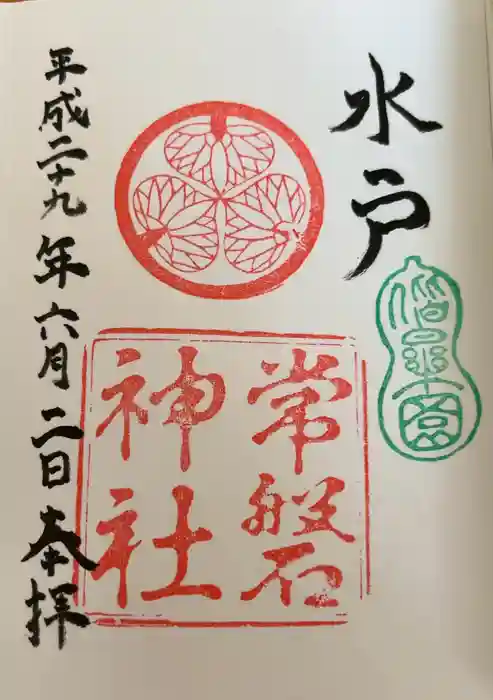 水戸
偕楽園
常磐
神社
平成二十九年六月二日奉拝